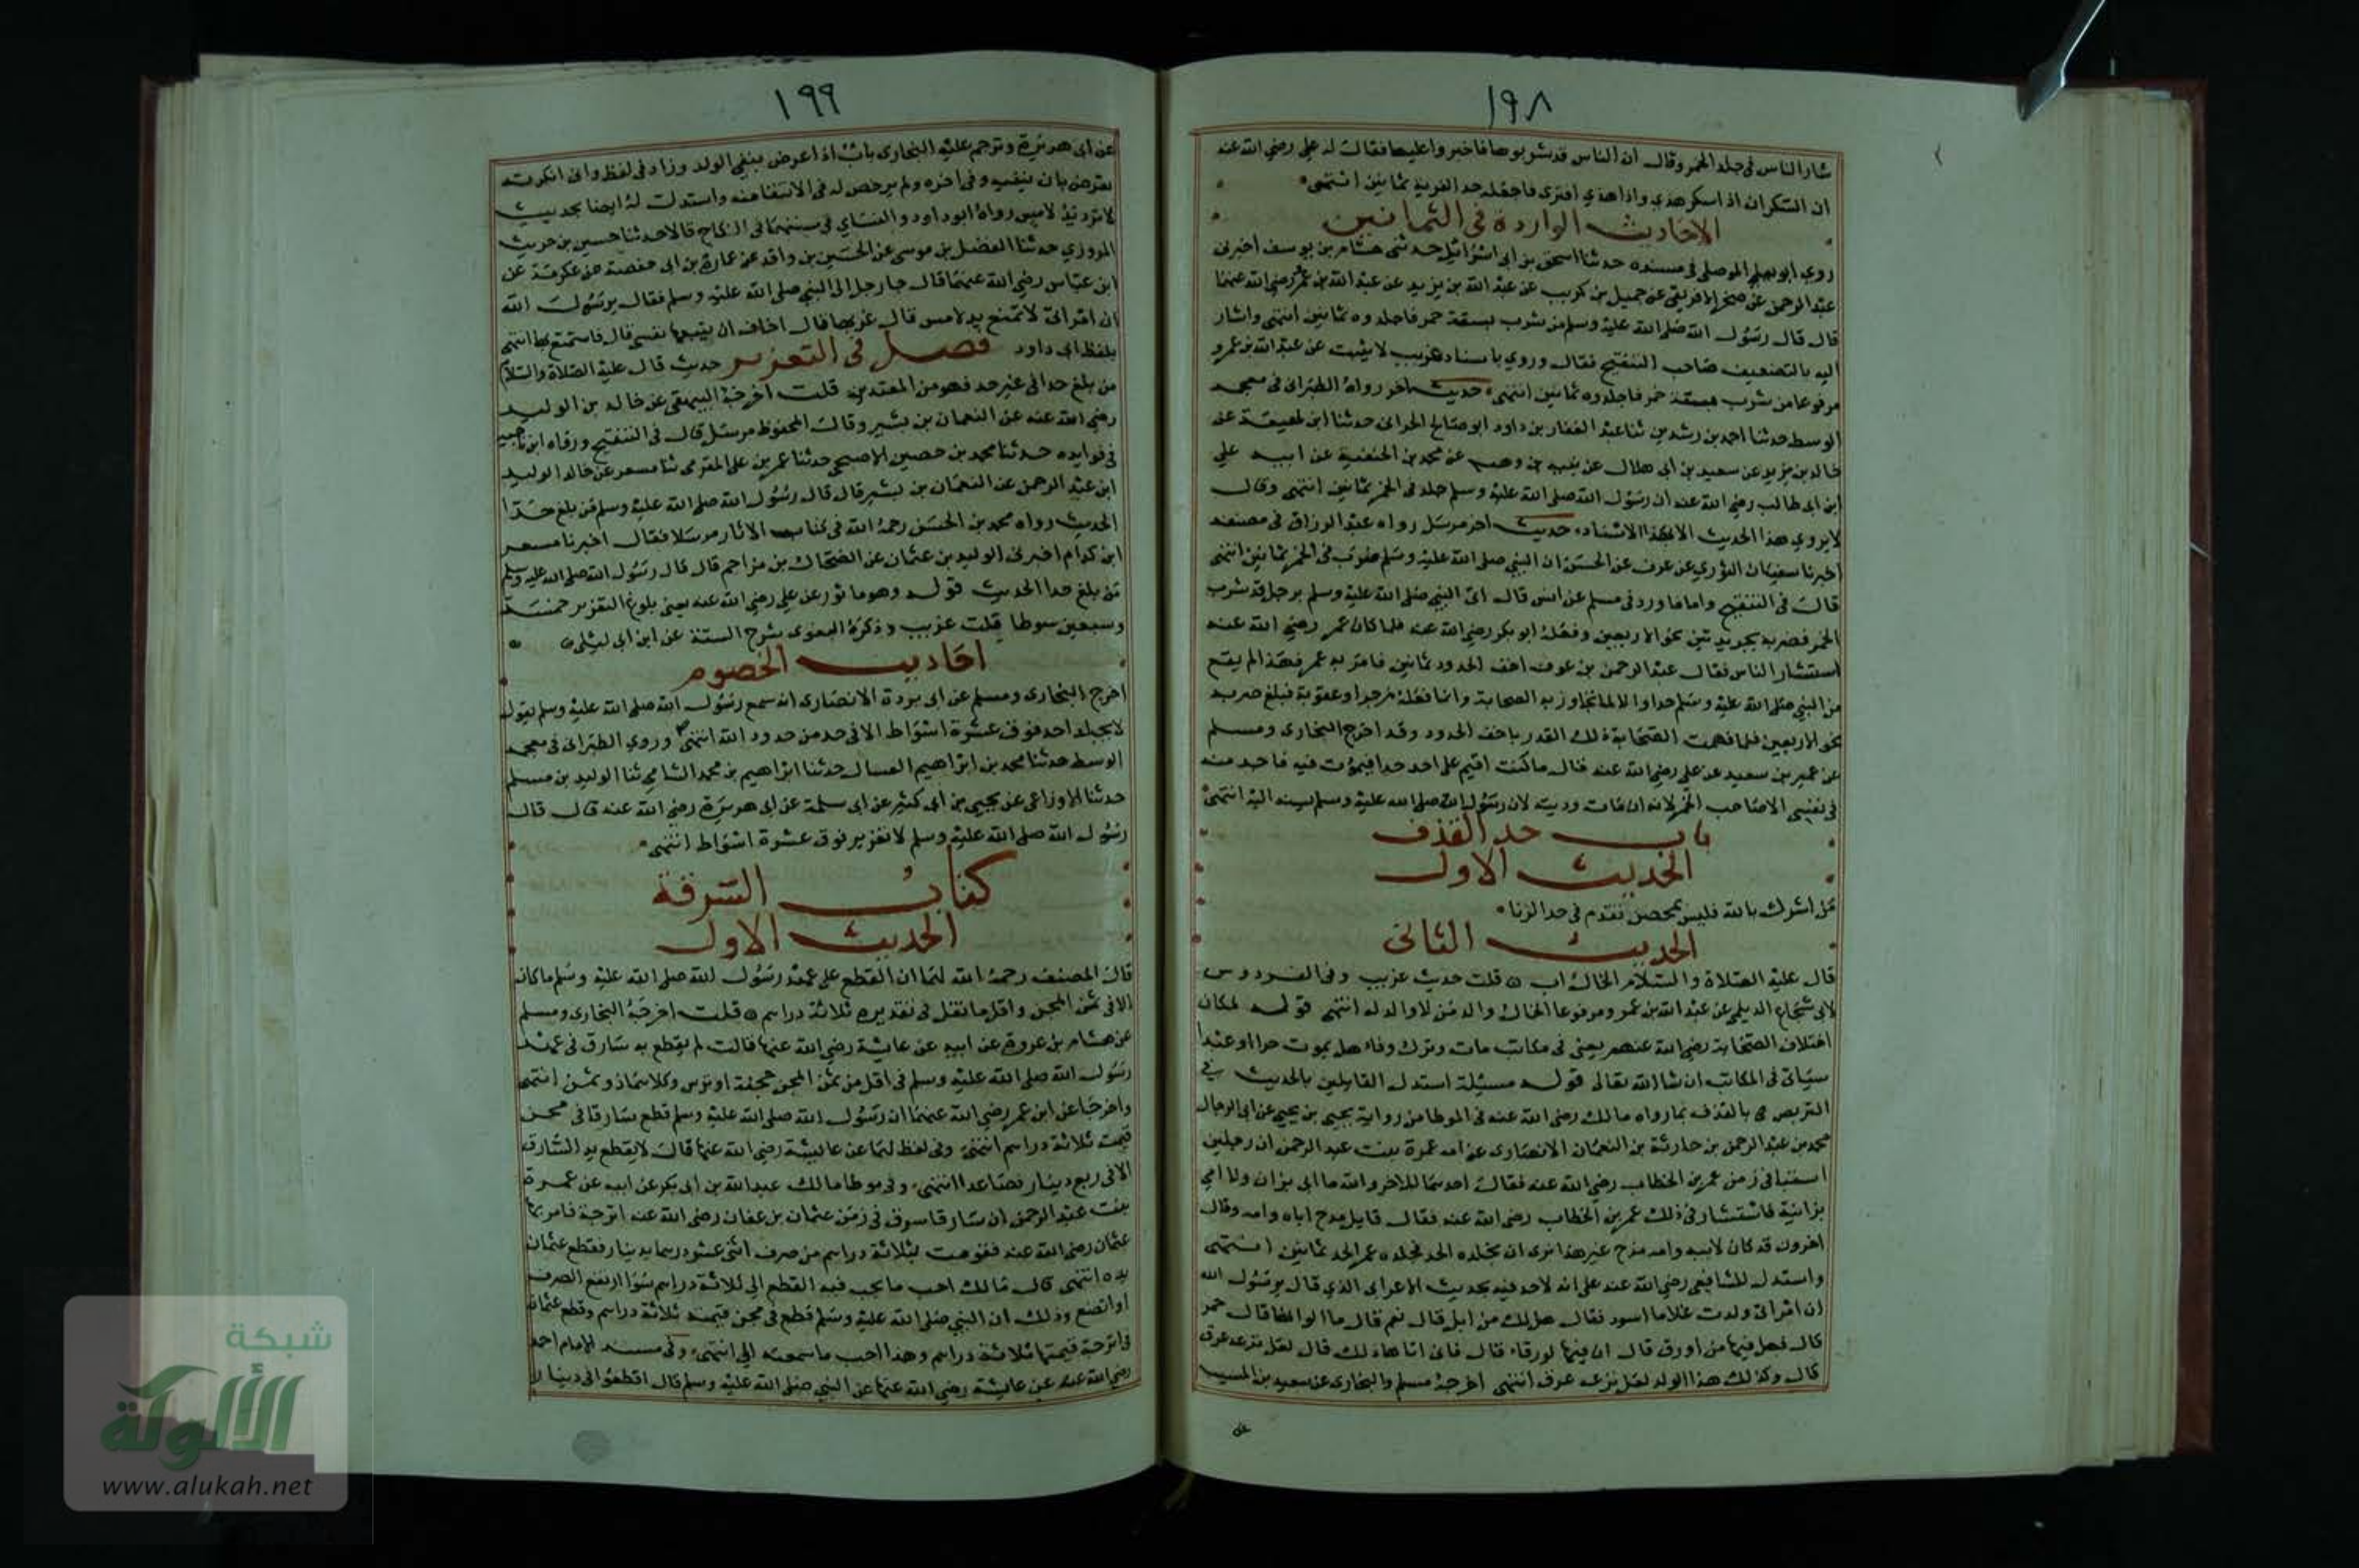 ١٩٨
شار الناس في جلد الخمر وقال ان الناس قد شربوها فاخبروا عليها فقال له علي رضي الله عنه
ان السكران اذا سكر هذي واذا هذي افترى فاجعله حد الفرية ثمانين انتهى
الاحاديث الواردة في الثمانين
روي ابو يعلي الموصلي في مسنده حدثنا اسحق بن ابي اسرائيل حدثني هشام بن يوسف اخبرني
عبد الرحمن عن صخر الافريقي عن جميل بن كريب عن عبد الله بن يزيد عن عبد الله بن عمرو رضي الله عنهما
قال قال رسول الله صلى الله عليه وسلم من شرب بسقة خمر فاجلدوه ثمانين انتهى واشار
اليه بالتضعيف صاحب التنقيح فقال وروي باسناد غريب لا يثبت عن عبد الله بن عمرو
مرفوعا من شرب بسقة خمر فاجلدوه ثمانين انتهى حديث اخر رواه الطبراني في معجمه
الوسط حدثنا احمد بن رشدين ثنا عبد الغفار بن داود ابو صالح الحراني حدثنا ابن لهيعة عن
خالد بن يزيد عن سعيد بن ابي هلال عن نبيه بن وهب عن محمد بن الحنفية عن ابيه علي
ابن ابي طالب رضي الله عنه ان رسول الله صلى الله عليه وسلم جلد في الخمر ثمانين انتهى وقال
لا يروي هذا الحديث الا بهذا الاسناد حديث اخر مرسل رواه عبد الرزاق في مصنفه
اخبرنا سفيان الثوري عن عوف عن الحسن ان النبي صلى الله عليه وسلم ضرب في الخمر ثمانين انتهى
قال في التنقيح واما ما ورد في مسلم عن انس قال اتى النبي صلى الله عليه وسلم برجل قد شرب
الخمر فضربه بجريدتين نحو الاربعين وفعله ابو بكر رضي الله عنه فلما كان عمر رضي الله عنه
استشار الناس فقال عبد الرحمن بن عوف اخف الحدود ثمانين فامر به عمر فهذا لم يقع
من النبي صلى الله عليه وسلم حدا والا لما تجاوز به الصحابة وانما فعله زجرا وعقوبة فبلغ ضربه
نحو الاربعين فلما فهمت الصحابة ذلك القدر باخف الحدود وقد اخرج البخارى ومسلم
عن عمير بن سعيد عن علي رضي الله عنه قال ما كنت اقيم على احد حدا فيموت فيه فاجد منه
في نفسي الا صاحب الخمر لانه ان مات وديته لان رسول الله صلى الله عليه وسلم لم يسنه اليه انتهى
باب حد القذف
الحديث الاول
من اشرك بالله فليس بمحصن تقدم في حد الزنا
الحديث الثاني
قال عليه الصلاة والسلام الخال اب قلت حديث غريب وفي الفردوس
لابي شجاع الديلمي عن عبد الله بن عمر ومرفوعا الخال والد من لا والد له انتهى قوله لمكان
اختلاف الصحابة رضي الله عنهم يعني في مكاتب مات وترك وفاء هل يموت حرا او عبدا
سياتي في المكاتب ان شا الله تعالى قوله مسيلة استدل القايلين بالحديث في
التعريض بالقذف بما رواه مالك رضي الله عنه في الموطا من رواية يحيى بن يحيى عن ابي الرجال
محمد بن عبد الرحمن بن حارثة بن النعمان الانصارى عن امه عمرة بنت عبد الرحمن ان رجلين
استبا في زمن عمر بن الخطاب رضي الله عنه فقال احدهما للاخر والله ما ابي بزان ولا امي
بزانية فاستشار في ذلك عمر بن الخطاب رضي الله عنه فقال قايل مدح اباه وامه وقال
اخرون قد كان لابيه وامه مدح غير هذا نرى ان تجلده الحد فجلده عمر الحد ثمانين انتهى
واستدل للشافعي رضي الله عنه على انه لا حد فيه بحديث الاعرابي الذي قال يرسول الله
ان امراتي ولدت غلاما اسود فقال هل لك من ابل قال نعم قال ما الوانها قال حمر
قال فهل فيها من اورق قال ان فيها لورقا قال فاني اتاها ذلك قال لعل نزعه عرق
قال وكذلك هذا الولد لعل نزعه عرق انتهى اخرجه مسلم والبخارى عن سعيد بن المسيب
عن
١٩٩
عن ابي هريرة وترجم عليه البخارى باب اذا عرض بنفي الولد وزاد في لفظ واني انكرته
يعرض بان ينفيه وفي اخره ولم يرخص له في الانتفا منه واستدل له ايضا بحديث
لا ترد يد لامس رواه ابو داود والنساي في سننهما في النكاح قالا حدثنا حسين بن حريث
المروزي حدثنا الفضل بن موسى عن الحسين بن واقد عن عمارة بن ابي حفصة عن عكرمة عن
ابن عباس رضي الله عنهما قال جا رجل الى النبي صلى الله عليه وسلم فقال يرسول الله
ان امراتي لا تمنع يد لامس قال غربها قال اخاف ان يتبعها نفسي قال فاستمتع بها انتهى
بلفظ ابي داود فصل في التعزير حديث قال عليه الصلاة والسلام
من بلغ حدا في غير حد فهو من المعتدين قلت اخرجه البيهقي عن خالد بن الوليد
رضي الله عنه عن النعمان بن بشير وقال المحفوظ مرسل قال في التنقيح ورواه ابن ناجيه
في فوايده حدثنا محمد بن حصين الاصبحي حدثنا عمر بن علي المقدمي ثنا مسعر عن خالد الوليد
ابن عبد الرحمن عن النعمان بن بشير قال قال رسول الله صلى الله عليه وسلم من بلغ حدا
الحديث رواه محمد بن الحسن رحمه الله في كتاب الاثار مرسلا فقال اخبرنا مسعر
ابن كدام اخبرني الوليد بن عثمان عن الضحاك بن مزاحم قال قال رسول الله صلى الله عليه وسلم
من بلغ حدا الحديث قوله وهو ماثور عن علي رضي الله عنه يعني بلوغ التعزير خمسة
وسبعين سوطا قلت غريب وذكره البغوي شرح السنة عن ابن ابي ليلى
احاديث الخصوم
اخرج البخارى ومسلم عن ابي بردة الانصارى انه سمع رسول الله صلى الله عليه وسلم يقول
لا يجلد احد فوق عشرة اسواط الا في حد من حدود الله انتهى وروي الطبراني في معجمه
الوسط حدثنا محمد بن ابراهيم العسال حدثنا ابراهيم بن محمد الشامي ثنا الوليد بن مسلم
حدثنا الاوزاعي عن يحيى بن ابي كثير عن ابي سلمة عن ابي هريرة رضي الله عنه قال قال
رسول الله صلى الله عليه وسلم لا تعزير فوق عشرة اسواط انتهى
كتاب السرقة
الحديث الاول
قال المصنف رحمه الله لنا ان القطع على عهد رسول الله صلى الله عليه وسلم ما كان
الا في ثمن المجن واقل ما نقل في تقديره ثلاثة دراهم قلت اخرجه البخارى ومسلم
عن هشام بن عروة عن ابيه عن عايشة رضي الله عنها قالت لم يقطع يد سارق في عهد
رسول الله صلى الله عليه وسلم في اقل من ثمن المجن حجفة او ترس وكلاهما ذو ثمن انتهى
واخرجا عن ابن عمر رضي الله عنهما ان رسول الله صلى الله عليه وسلم قطع سارقا في مجن
قيمت ثلاثة دراهم انتهى وفي لفظ لهما عن عايشة رضي الله عنها قال لا يقطع يد السارق
الا في ربع دينار فصاعدا انتهى وفي موطا مالك عبد الله بن ابي بكر عن ابيه عن عمرة
بنت عبد الرحمن ان سارقا سرق في زمن عثمان بن عفان رضي الله عنه اترجة فامر بها
عثمان رضي الله عنه فقومت بثلاثة دراهم من صرف اثني عشر درهما بدينار فقطع عثمان
يده انتهى قال مالك احب ما يجب فيه القطع الي ثلاثة دراهم سوا ارتفع الصرف
او اتضع وذلك ان النبي صلى الله عليه وسلم قطع في مجن قيمته ثلاثة دراهم وقطع عثمان
في اترجة قيمتها ثلاثة دراهم وهذا احب ما سمعت الي انتهى وفي مسند الامام احمد
رضي الله عنه عن عايشة رضي الله عنها عن النبي صلى الله عليه وسلم قال اقطعوا في دينار
شبكة
الألوكة
www.alukah.net